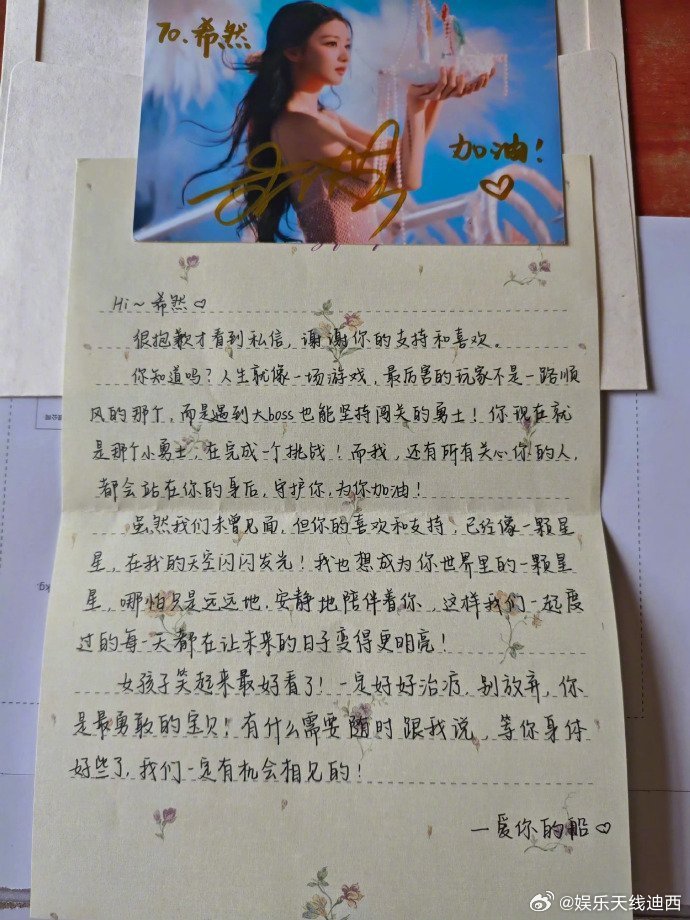 To.希然
加油!
Hi~希然♡
很抱歉才看到私信,谢谢你的支持和喜欢。
你知道吗?人生就像一场游戏,最厉害的玩家不是一路顺
风的那个,而是遇到大boss也能坚持闯关的勇士!你现在就
是那个小勇士,在完成一个挑战!而我,还有所有关心你的人,
都会站在你的身后,守护你,为你加油!
虽然我们未曾见面,但你的喜欢和支持,已经像一颗星
星,在我的天空闪闪发光!我也想成为你世界里的一颗星
星,哪怕只是远远地,安静地陪伴着你,这样我们一起度
过的每一天都在让未来的日子变得更明亮!
女孩子笑起来最好看了!一定好好治疗,别放弃,你
是最勇敢的宝贝!有什么需要随时跟我说,等你身体
好些了,我们一定有机会相见的!
—爱你的船♡
@娱乐天线迪西